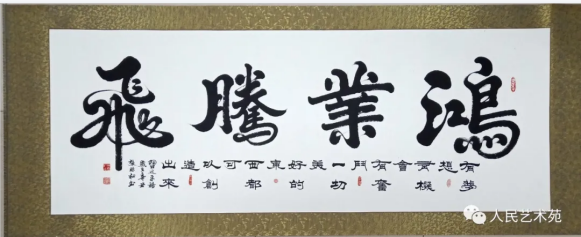 鴻業騰飛
有夢想有機會有奮鬥一切美好的東西都可以創造出來
人民艺术苑